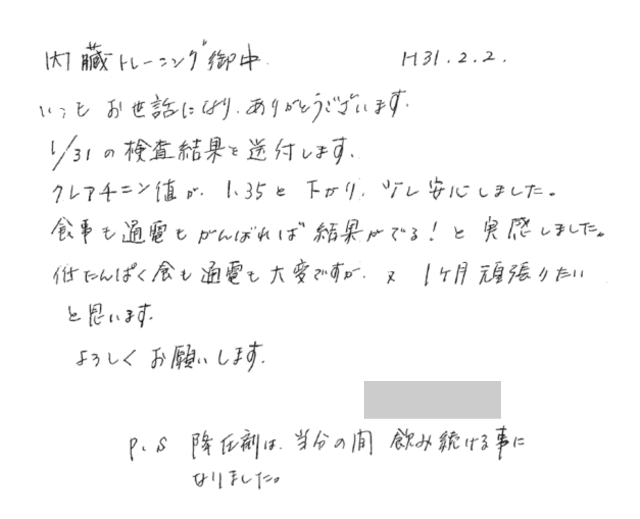 内臓トレーニング御中 H31.2.2.
いつも お世話になり、ありがとうございます。
1/31の検査結果を送付します。
クレアチニン値が、1.35と下がり、少し安心しました。
食事も通電もがんばれば結果がでる!と実感しました。
低たんぱく食も通電も大変ですが、又 1ケ月頑張りたい
と思います。
よろしくお願いします。
P.S 降圧剤は、当分の間 飲み続ける事に
なりました。